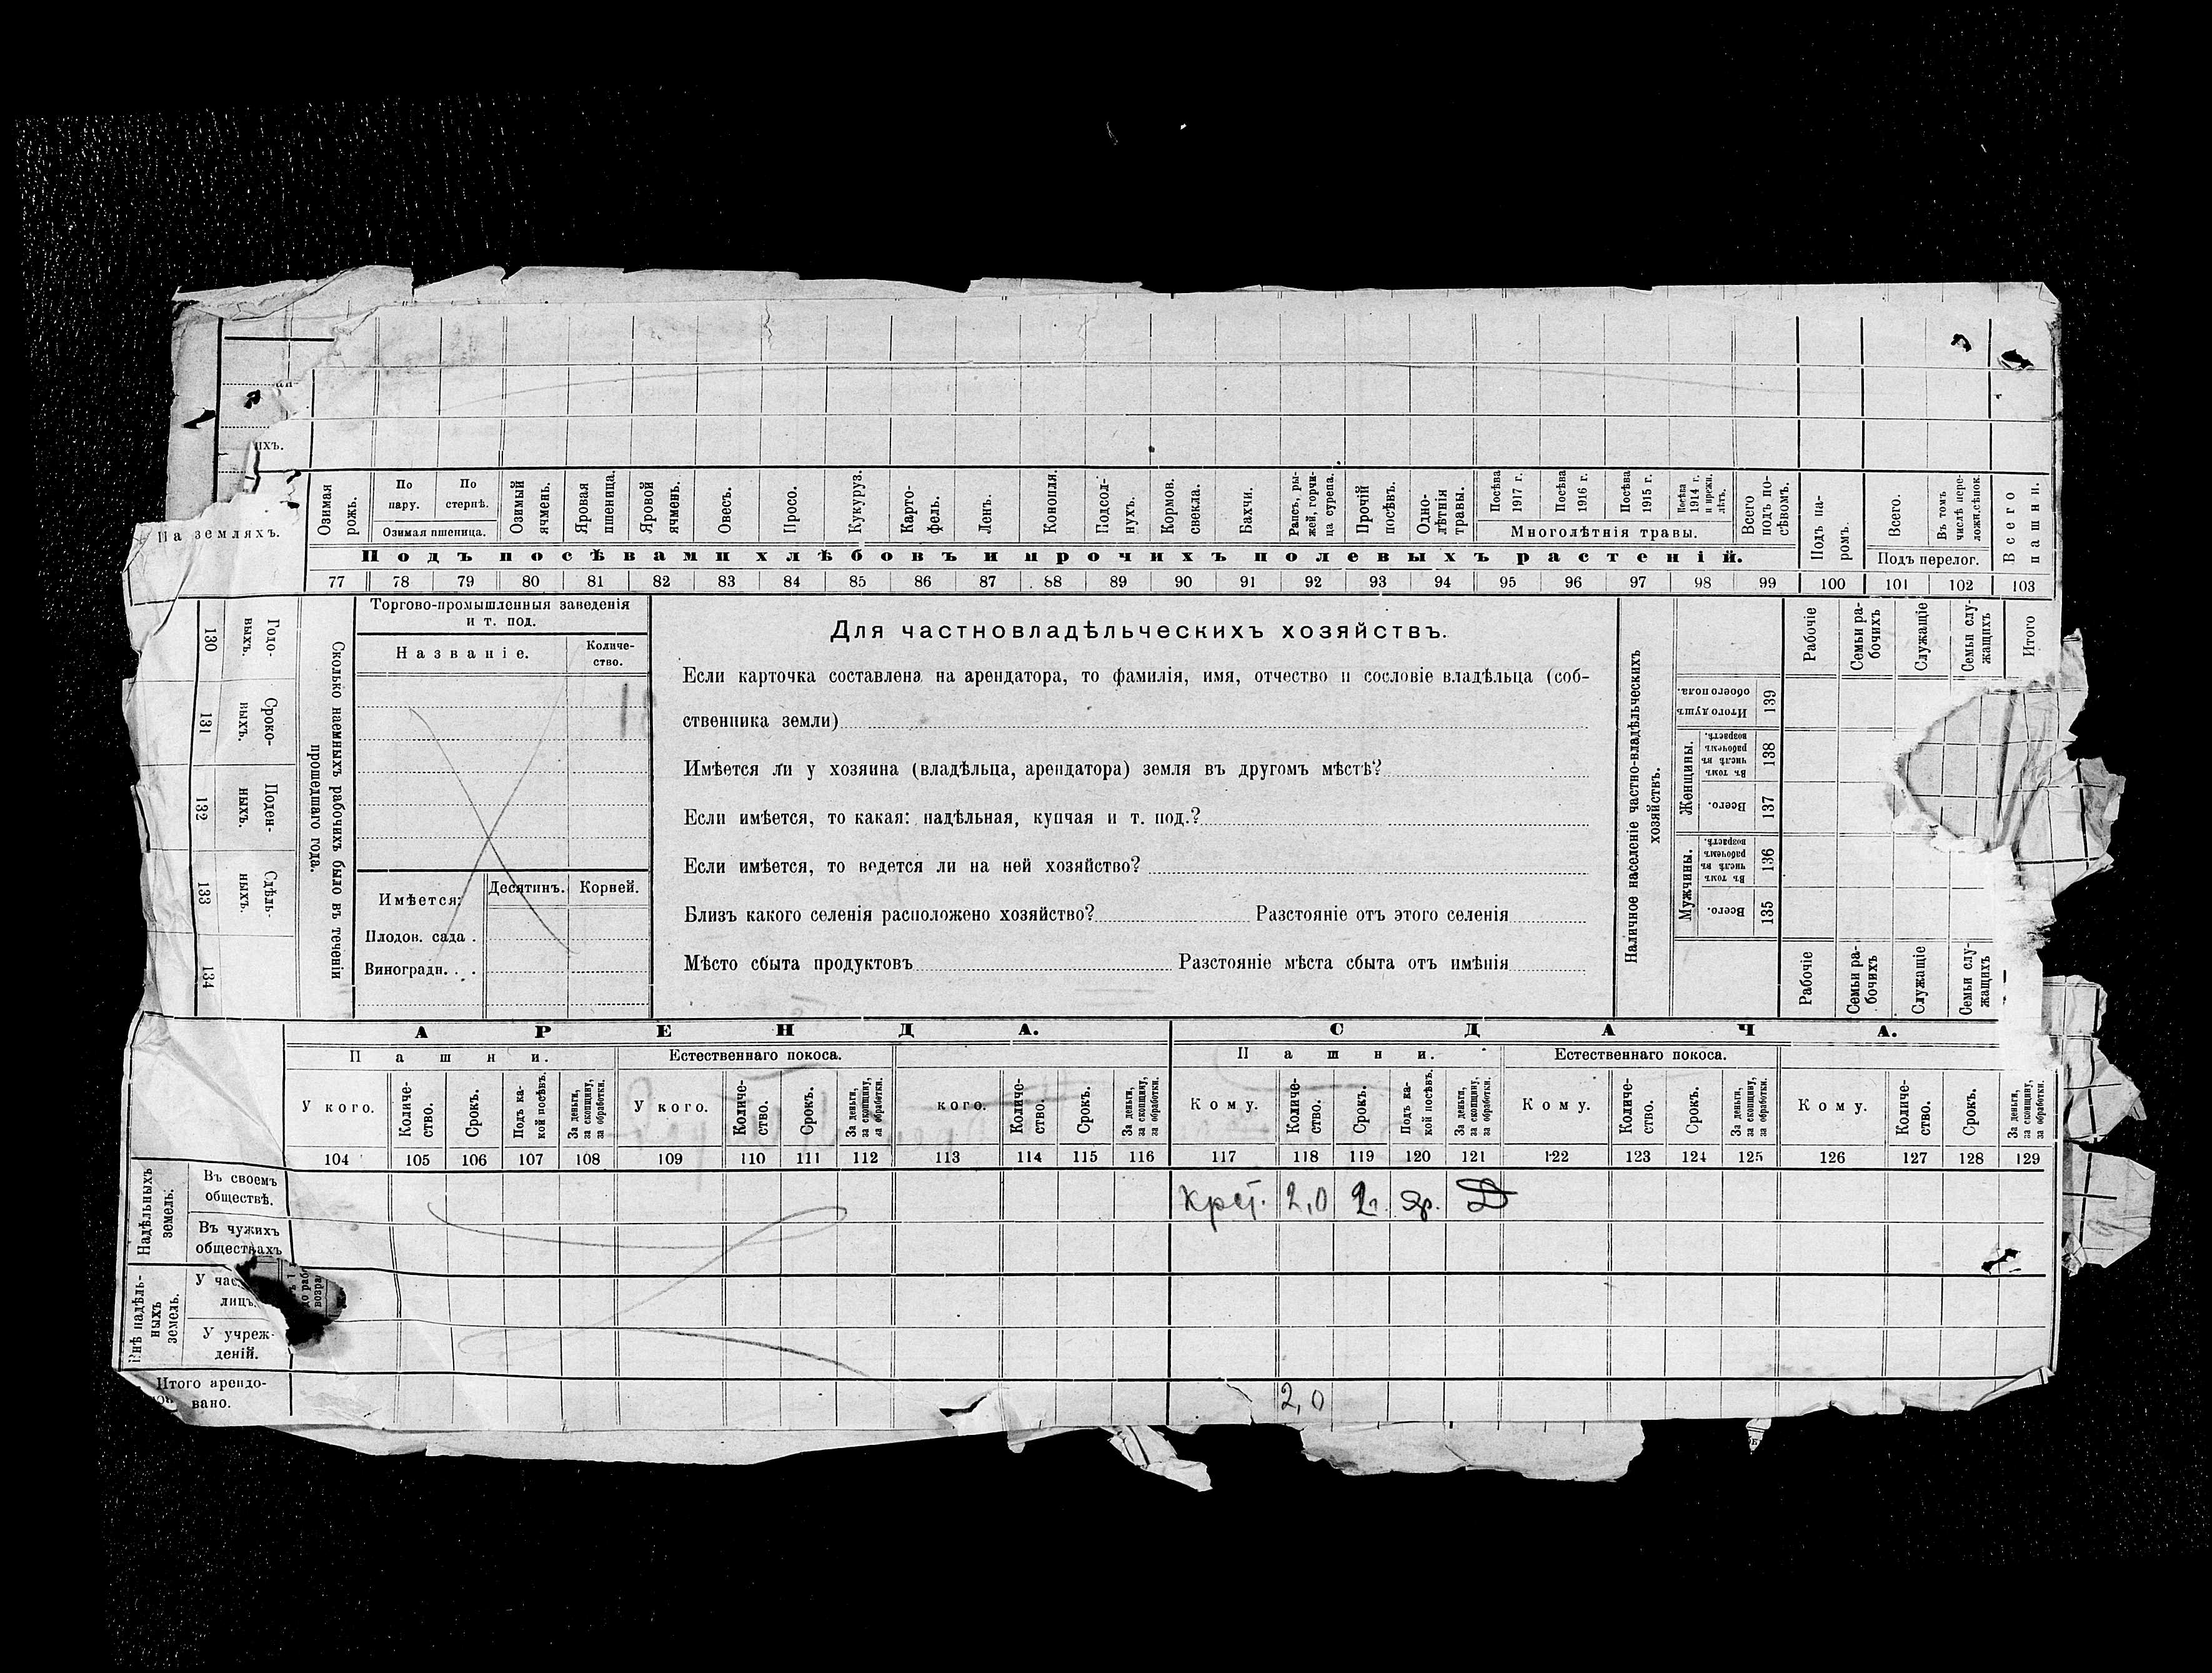 ихъ.
На земляхъ.
Озимая рожь.
По пару.
По стернѣ.
Озимая пшеница.
Озимый ячмень.
Яровая пшеница.
Яровой ячмень.
Овесъ.
Просо.
Кукуруз.
Карто-фель.
Ленъ.
Конопля.
Подсол-нухъ.
Кормов. свекла.
Бахчи.
Рапсъ, ры-жей, горчи-ца сурепа.
Прочій посѣвъ.
Одно-лѣтнія травы.
Посѣва 1917 г.
Посѣва 1916 г.
Посѣва 1915 г.
Посѣва 1914 г. и прежн. лѣтъ.
Многолѣтнія травы.
Всего подъ по-сѣвомъ.
Подъ па-ромъ.
Всего.
Въ томъ числѣ пере-ложи,сѣнок.
Подъ перелог.
Всего пашни.
Подъ посѣвами хлѣбовъ и прочихъ полевыхъ растеній.
77 78 79 80 81 82 83 84 85 86 87 88 89 90 91 92 93 94 95 96 97 98 99 100 101 102 103
130 Годо-выхъ.
131 Сроко-выхъ.
132 Поден-ныхъ.
133 Сдѣль-ныхъ.
134
Сколько наемныхъ рабочихъ было въ теченіи прошедшаго года.
Торгово-промышленныя заведенія
и т. под.
Названіе.
Количе-ство.
Имѣется:
Десятинъ.
Корней.
Плодов. сада .
Виноградн. . .
Для частновладѣльческихъ хозяйствъ.
Если карточка составлена на арендатора, то фамилія, имя, отчество и сословіе владѣльца (соб-
ственника земли)
Имѣется ли у хозяина (владѣльца, арендатора) земля въ другомъ мѣстѣ?
Если имѣется, то какая: надѣльная, купчая и т. под.?
Если имѣется, то ведется ли на ней хозяйство?
Близъ какого селенія расположено хозяйство? Разстояніе отъ этого селенія
Мѣсто сбыта продуктовъ Разстояніе мѣста сбыта отъ имѣнія
Наличное населеніе частно-владѣльческихъ хозяйствъ.
Итого душъ обоего пола. 139
Женщины.
Въ томъ числѣ въ рабочемъ возрастѣ. 138
Всего. 137
Мужчины.
Въ томъ числѣ въ рабочемъ возрастѣ. 136
Всего. 135
Рабочіе
Семьи ра-бочихъ
Служащіе
Семьи слу-жащихъ
Итого
Рабочіе
Семьи ра-бочихъ
Служащіе
Семьи слу-жащихъ
АРЕНДА.
СДАЧА.
Пашни.
Естественнаго покоса.
Пашни.
Естественнаго покоса.
У кого.
Количе-ство.
Срокъ.
Подъ ка-кой посѣвъ.
За деньги, за скопщину, за обработки.
У кого.
Количе-ство.
Срокъ.
За деньги, за скопщину, за обработки.
кого.
Количе-ство.
Срокъ.
За деньги, за скопщину, за обработки.
Кому.
Количе-ство.
Срокъ.
Подъ ка-кой посѣвъ.
За деньги, за скопщину, за обработки.
Кому.
Количе-ство.
Срокъ.
За деньги, за скопщину, за обработки.
Кому.
Количе-ство.
Срокъ.
За деньги, за скопщину, за обработки.
104 105 106 107 108 109 110 111 112 113 114 115 116 117 118 119 120 121 122 123 124 125 126 127 128 129
Надѣльныхъ земель.
Въ своемъ обществѣ.
2,0 2г. яр. Д
Въ чужихъ обществахъ
Внѣ надѣль-ныхъ земель.
У час
лицъ.
У учреж-деній.
Итого арендо-вано.
2,0